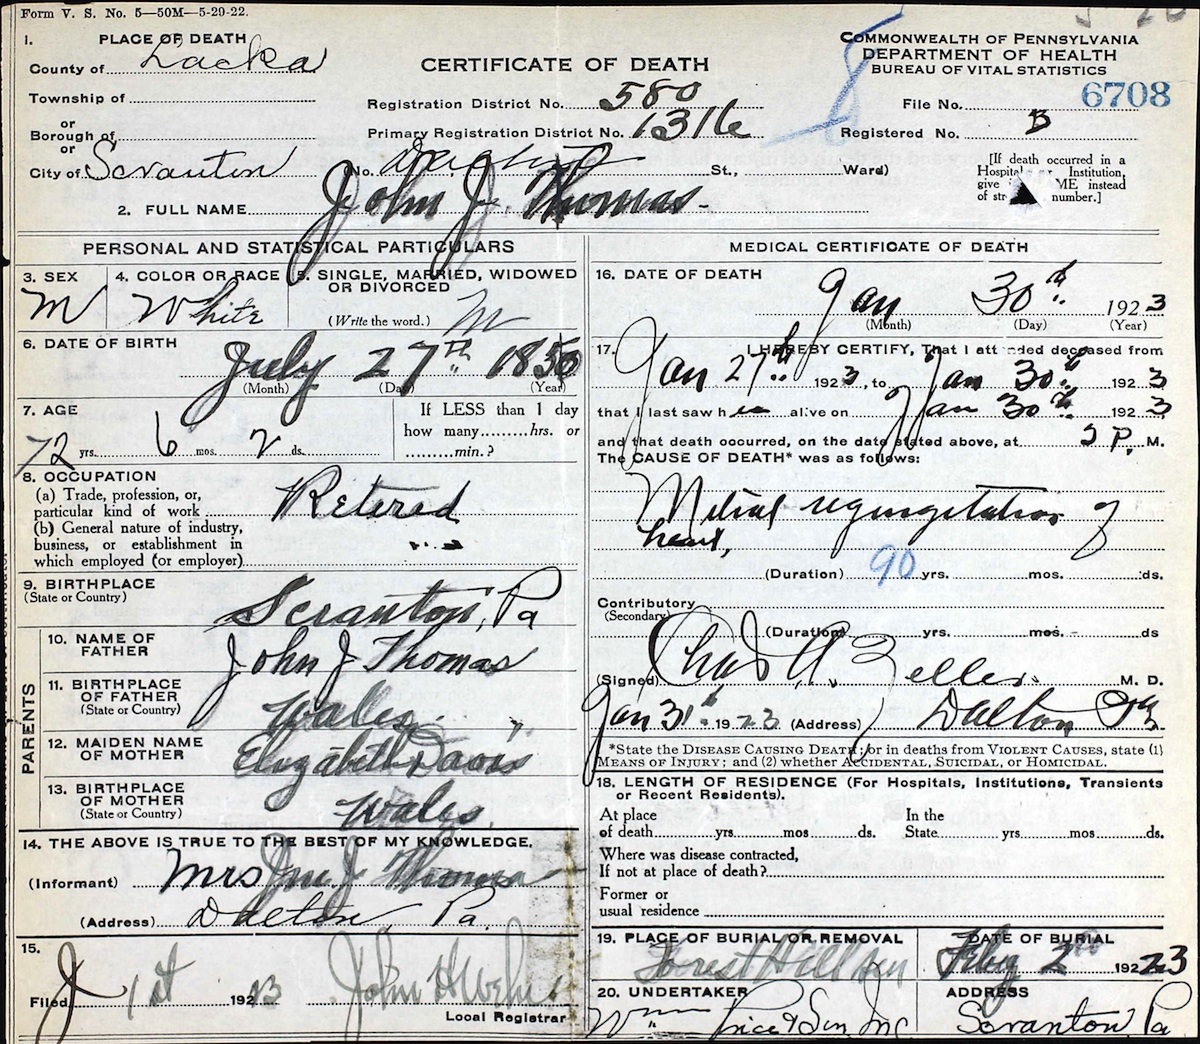 Form V. S. No. 5—50M—5-29-22.
1. PLACE OF DEATH
County of Lacka
Township of
or
Borough of
or
City of Scranton
CERTIFICATE OF DEATH
Registration District No. 580
Primary Registration District No. 1316
No. St., Ward)
COMMONWEALTH OF PENNSYLVANIA
DEPARTMENT OF HEALTH
BUREAU OF VITAL STATISTICS
File No. 6708
Registered No. B
[If death occurred in a
Hospital Institution,
give ME instead
of str number.]
2. FULL NAME John J. Thomas
PERSONAL AND STATISTICAL PARTICULARS
3. SEX
M
4. COLOR OR RACE
White
5. SINGLE, MARRIED, WIDOWED
OR DIVORCED
(Write the word.) M
6. DATE OF BIRTH
July 27th 1850
(Month) (Day) (Year)
7. AGE
72 yrs. 6 mos. 2 ds.
If LESS than 1 day
how many hrs. or
min.?
8. OCCUPATION
(a) Trade, profession, or,
particular kind of work Retired
(b) General nature of industry,
business, or establishment in
which employed (or employer)
9. BIRTHPLACE
(State or Country)
Scranton, Pa
PARENTS
10. NAME OF
FATHER
John J Thomas
11. BIRTHPLACE
OF FATHER
(State or Country)
Wales
12. MAIDEN NAME
OF MOTHER
Elizabeth Davis
13. BIRTHPLACE
OF MOTHER
(State or Country)
Wales.
14. THE ABOVE IS TRUE TO THE BEST OF MY KNOWLEDGE.
(Informant) Mrs Jno. J Thomas
(Address) Dalton Pa.
15.
Filed 1st 1923 John H
Local Registrar
MEDICAL CERTIFICATE OF DEATH
16. DATE OF DEATH
Jan 30th 1923
(Month) (Day) (Year)
17. I HEREBY CERTIFY, That I attended deceased from
Jan 27th 1923, to Jan 30th 1923
that I last saw h alive on Jan 30th 1923
and that death occurred, on the date stated above, at P. M.
The CAUSE OF DEATH* was as follows:
Mitral regurgitation of
heart,
(Duration) 90 yrs. mos. ds.
Contributory
(Secondary)
(Duration) yrs. mos. ds
(Signed) Chas A. Zeller M. D.
Jan 31st 1923 (Address) Dalton Pa
*State the DISEASE CAUSING DEATH; or in deaths from VIOLENT CAUSES, state (1)
MEANS OF INJURY; and (2) whether ACCIDENTAL, SUICIDAL, OR HOMICIDAL.
18. LENGTH OF RESIDENCE (For Hospitals, Institutions, Transients
or Recent Residents).
At place
of death yrs mos ds.
In the
State yrs mos ds.
Where was disease contracted,
If not at place of death?
Former or
usual residence
19. PLACE OF BURIAL OR REMOVAL
Forest Hill
DATE OF BURIAL
Feby 2 1923
20. UNDERTAKER
Wm Price & Son, Inc
ADDRESS
Scranton Pa